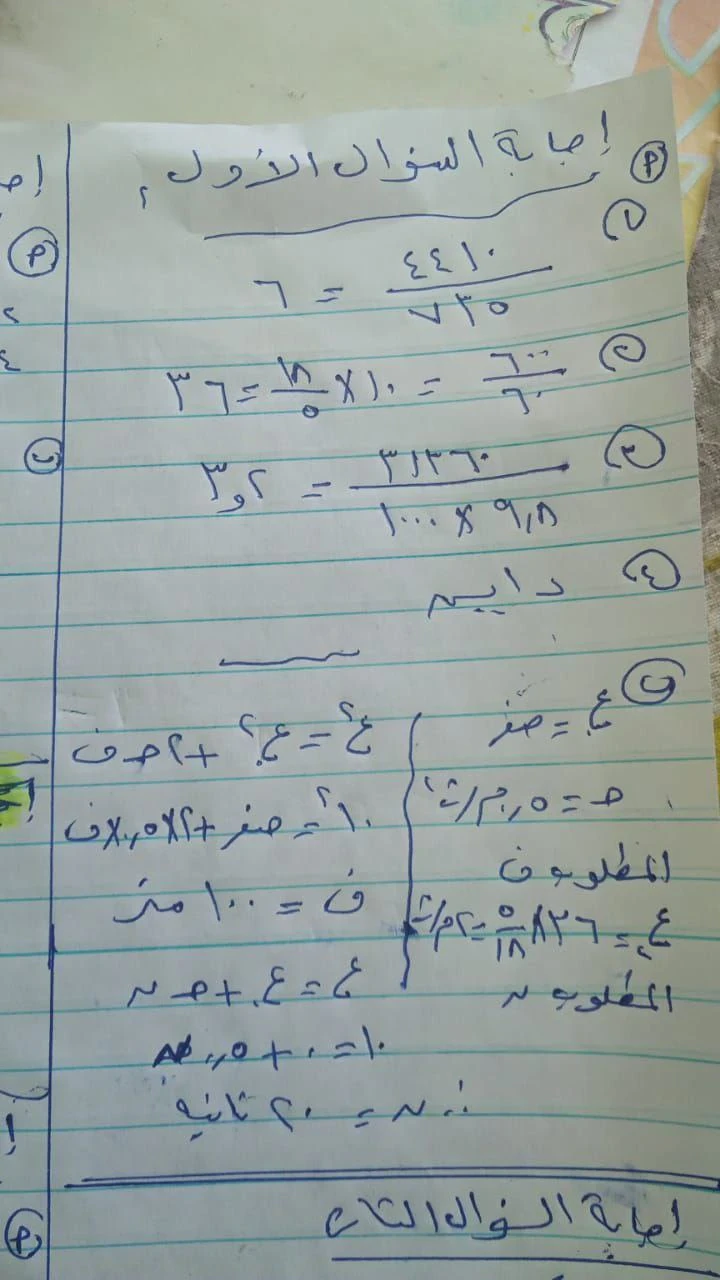 إجابة السؤال الأول
(P)
١) ٤٤١٠ / ٧٣٥ = ٦
٢) ٦٠٠ / ٦٠ = ١٠ × ١٨ / ٥ = ٣٦
٣) ٣١٣٦٠ / ٩,٨ × ١٠٠٠ = ٣,٢
٤) داين
(ب) ع. = صفر
حـ = ٠,٥ م/ث٢
المطلوب ف
ع = ٣٦ × ٥ / ١٨ = ١٠ م/ث
المطلوب ن
ع٢ = ع.٢ + ٢ حـ ف
١٠٢ = صفر + ٢ × ٠,٥ × ف
ف = ١٠٠ متر
ع = ع. + حـ ن
١٠ = ٠ + ٠,٥ ن
∴ ن = ٢٠ ثانيه
إجابة السؤال الثانى